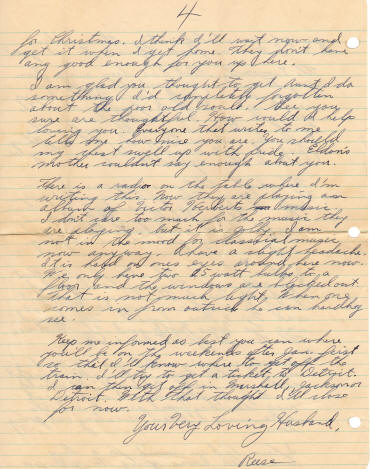 4
for Christmas. I think I'll wait now and
get it when I get home. They don't have
any good enough for you up here.
I am glad you thought to get Aunt Ido
something. I'd completely forgotten
about the poor old soul. Gee you
sure are thoughtful. How could I help
loving you. Everyone that writes to me
tells me how nice you are. You should
my chest swell up with pride.
mother couldn't say enough about you.
There is a radio on the table where I'm
writing this. Now they are playing an
album of Victor Herbert's music.
I don't care too much for the music they
are playing, but it is
not in the mood for classical music
now anyway. I have a slight headache.
It is hard on ones eyes around here now.
We only have two 25 watt bulbs to a
floor and the windows are blocked out
that is not much light. When one
comes in from outside he can hardly
see.
Keep me informed as best you can where
you'll be on the weekends after Jan. first
so that I'll know where to get off the
train. I'll try to get a ticket to Detroit.
I can then get off in Marshall, Jackson or
Detroit. With that thought I'll close
for now.
Your Very Loving Husband,
Reese